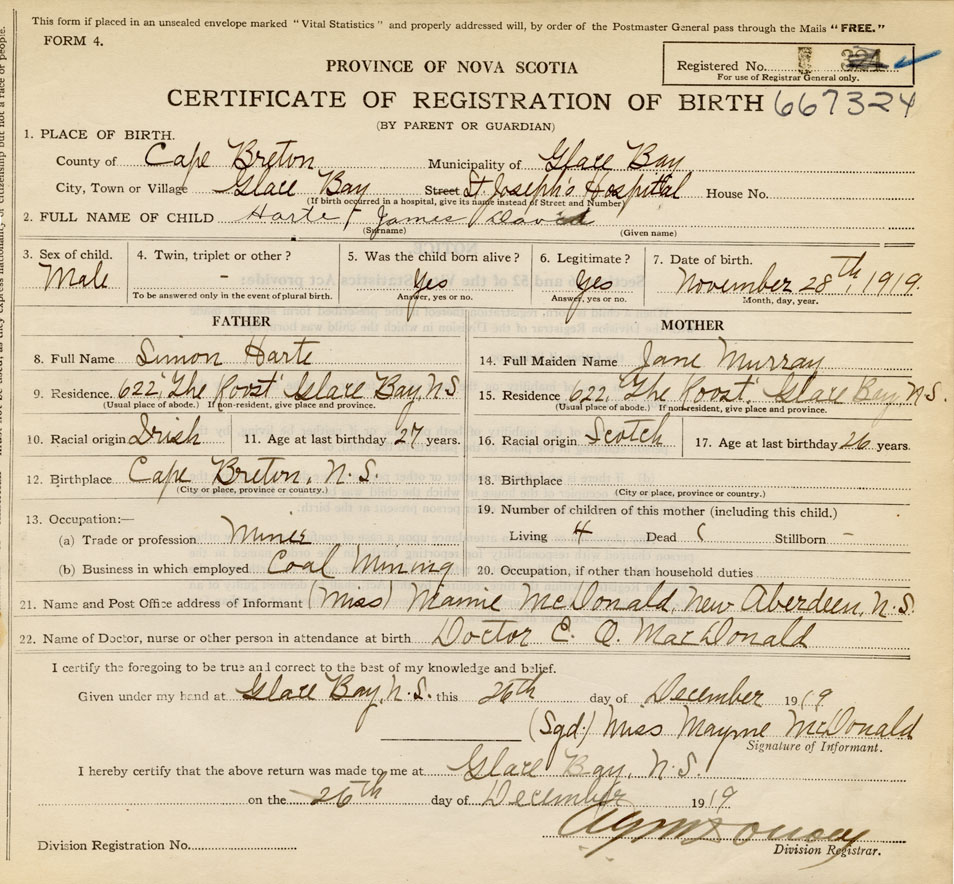 This form if placed in an unsealed envelope marked "Vital Statistics" and properly addressed will, by order of the Postmaster General pass through the Mails "FREE."
FORM 4.
Registered No. 324
For use of Registrar General only.
PROVINCE OF NOVA SCOTIA
CERTIFICATE OF REGISTRATION OF BIRTH 667324
(BY PARENT OR GUARDIAN)
1. PLACE OF BIRTH.
County of Cape Breton Municipality of Glace Bay
City, Town or Village Glace Bay Street St Joseph's Hospital House No.
(If birth occurred in a hospital, give its name instead of Street and Number)
2. FULL NAME OF CHILD Harte, James David
(Surname) (Given name)
3. Sex of child. 4. Twin, triplet or other? 5. Was the child born alive? 6. Legitimate? 7. Date of birth.
Male - Yes Yes November 28th, 1919.
To be answered only in the event of plural birth. Answer, yes or no. Answer, yes or no. Month, day, year.
FATHER MOTHER
8. Full Name Simon Harte 14. Full Maiden Name Jane Murray
9. Residence. 622, "The Roost" Glace Bay, N.S 15. Residence 622, "The Roost". Glace Bay, N.S.
(Usual place of abode.) If non-resident, give place and province. (Usual place of abode.) If non-resident, give place and province.
10. Racial origin Irish 11. Age at last birthday 27 years. 16. Racial origin Scotch 17. Age at last birthday 26 years.
12. Birthplace Cape Breton, N.S. 18. Birthplace
(City or place, province or country.) (City or place, province or country.)
13. Occupation:— 19. Number of children of this mother (including this child.)
(a) Trade or profession. Miner Living 4 Dead Stillborn -
(b) Business in which employed Coal Mining 20. Occupation, if other than household duties
21. Name and Post Office address of Informant (Miss) Mamie McDonald, New Aberdeen, N.S.
22. Name of Doctor, nurse or other person in attendance at birth Doctor E. O. MacDonald
I certify the foregoing to be true and correct to the best of my knowledge and belief.
Given under my hand at Glace Bay, N.S. this 26th day of December 1919
(Sgd.) Miss Mayme McDonald
Signature of Informant.
I hereby certify that the above return was made to me at Glace Bay, N.S.
on the 26th day of December 1919
Division Registration No.
Division Registrar.